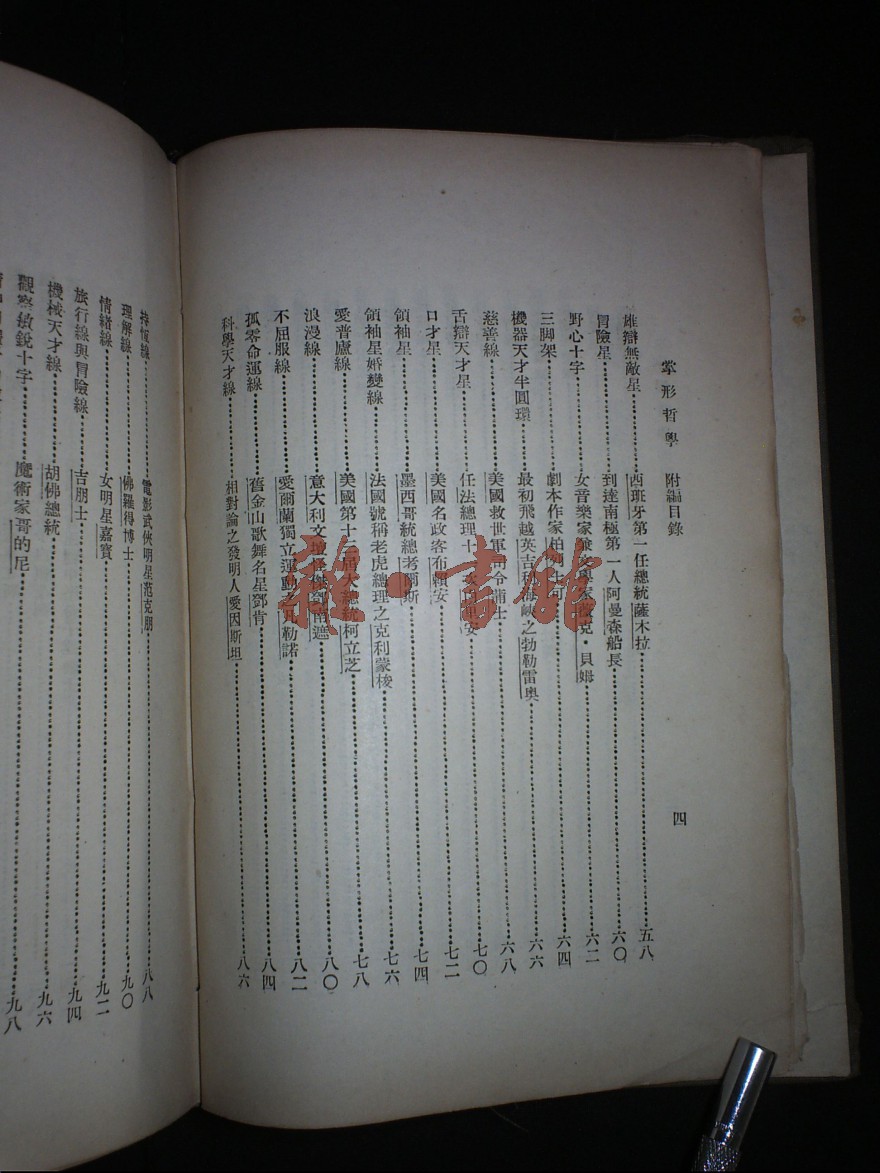 掌形哲學 附編目錄 四
雄辯無敵星 西班牙第一任總統薩木拉 五八
冒險星 到達南極第一人阿曼森船長 六〇
野心十字 女音樂家兼文學家 克·貝姆 六二
三脚架 劇本作家柏 六四
機器天才半圓環 最初飛越英吉利海峽之勃勒雷奧 六六
慈善線 美國救世軍司令蒲士 六八
舌辯天才星 任法總理十一次 安 七〇
口才星 美國名政客布賴安 七二
領袖星 墨西哥統總考爾斯 七四
領袖星婚變線 法國號稱老虎總理之克利蒙梭 七六
愛普廬線 美國第十 屆大總統柯立芝 七八
浪漫線 意大利文壇怪傑鄧南遮 八〇
不屈服線 愛爾蘭獨立運動之凡勒諾 八二
孤零命運線 舊金山歌舞名星鄧肯 八四
科學天才線 相對論之發明人愛因斯坦 八六
持恆線 電影武俠明星范克朋 八八
理解線 佛羅得博士 九〇
情緒線 女明星嘉寶 九二
旅行線與冒險線 吉朋士 九四
機械天才線 胡佛總統 九六
觀察敏銳十字 魔術家哥的尼 九八
雜·書館